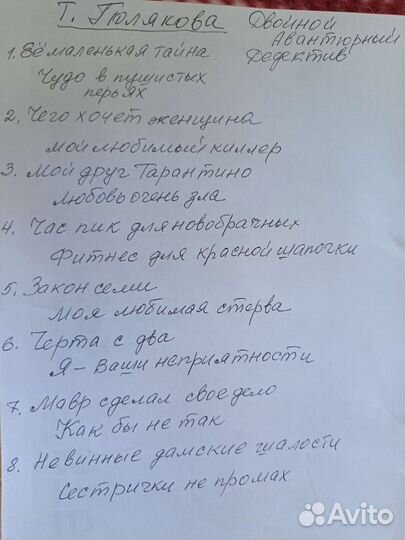 Т. Полякова Двойной
Авантюрный
Детектив
1. Её маленькая тайна
Чудо в пушистых
перьях
2. Чего хочет женщина
мой любимый киллер
3. Мой друг Тарантино
Любовь очень зла
4. Час пик для новобрачных
Фитнес для красной шапочки
5. Закон семи
Моя любимая стерва
6. Черта с два
Я - Ваши неприятности
7. Мавр сделал свое дело
Как бы не так
8. Невинные дамские шалости
Сестрички не промах
Avito